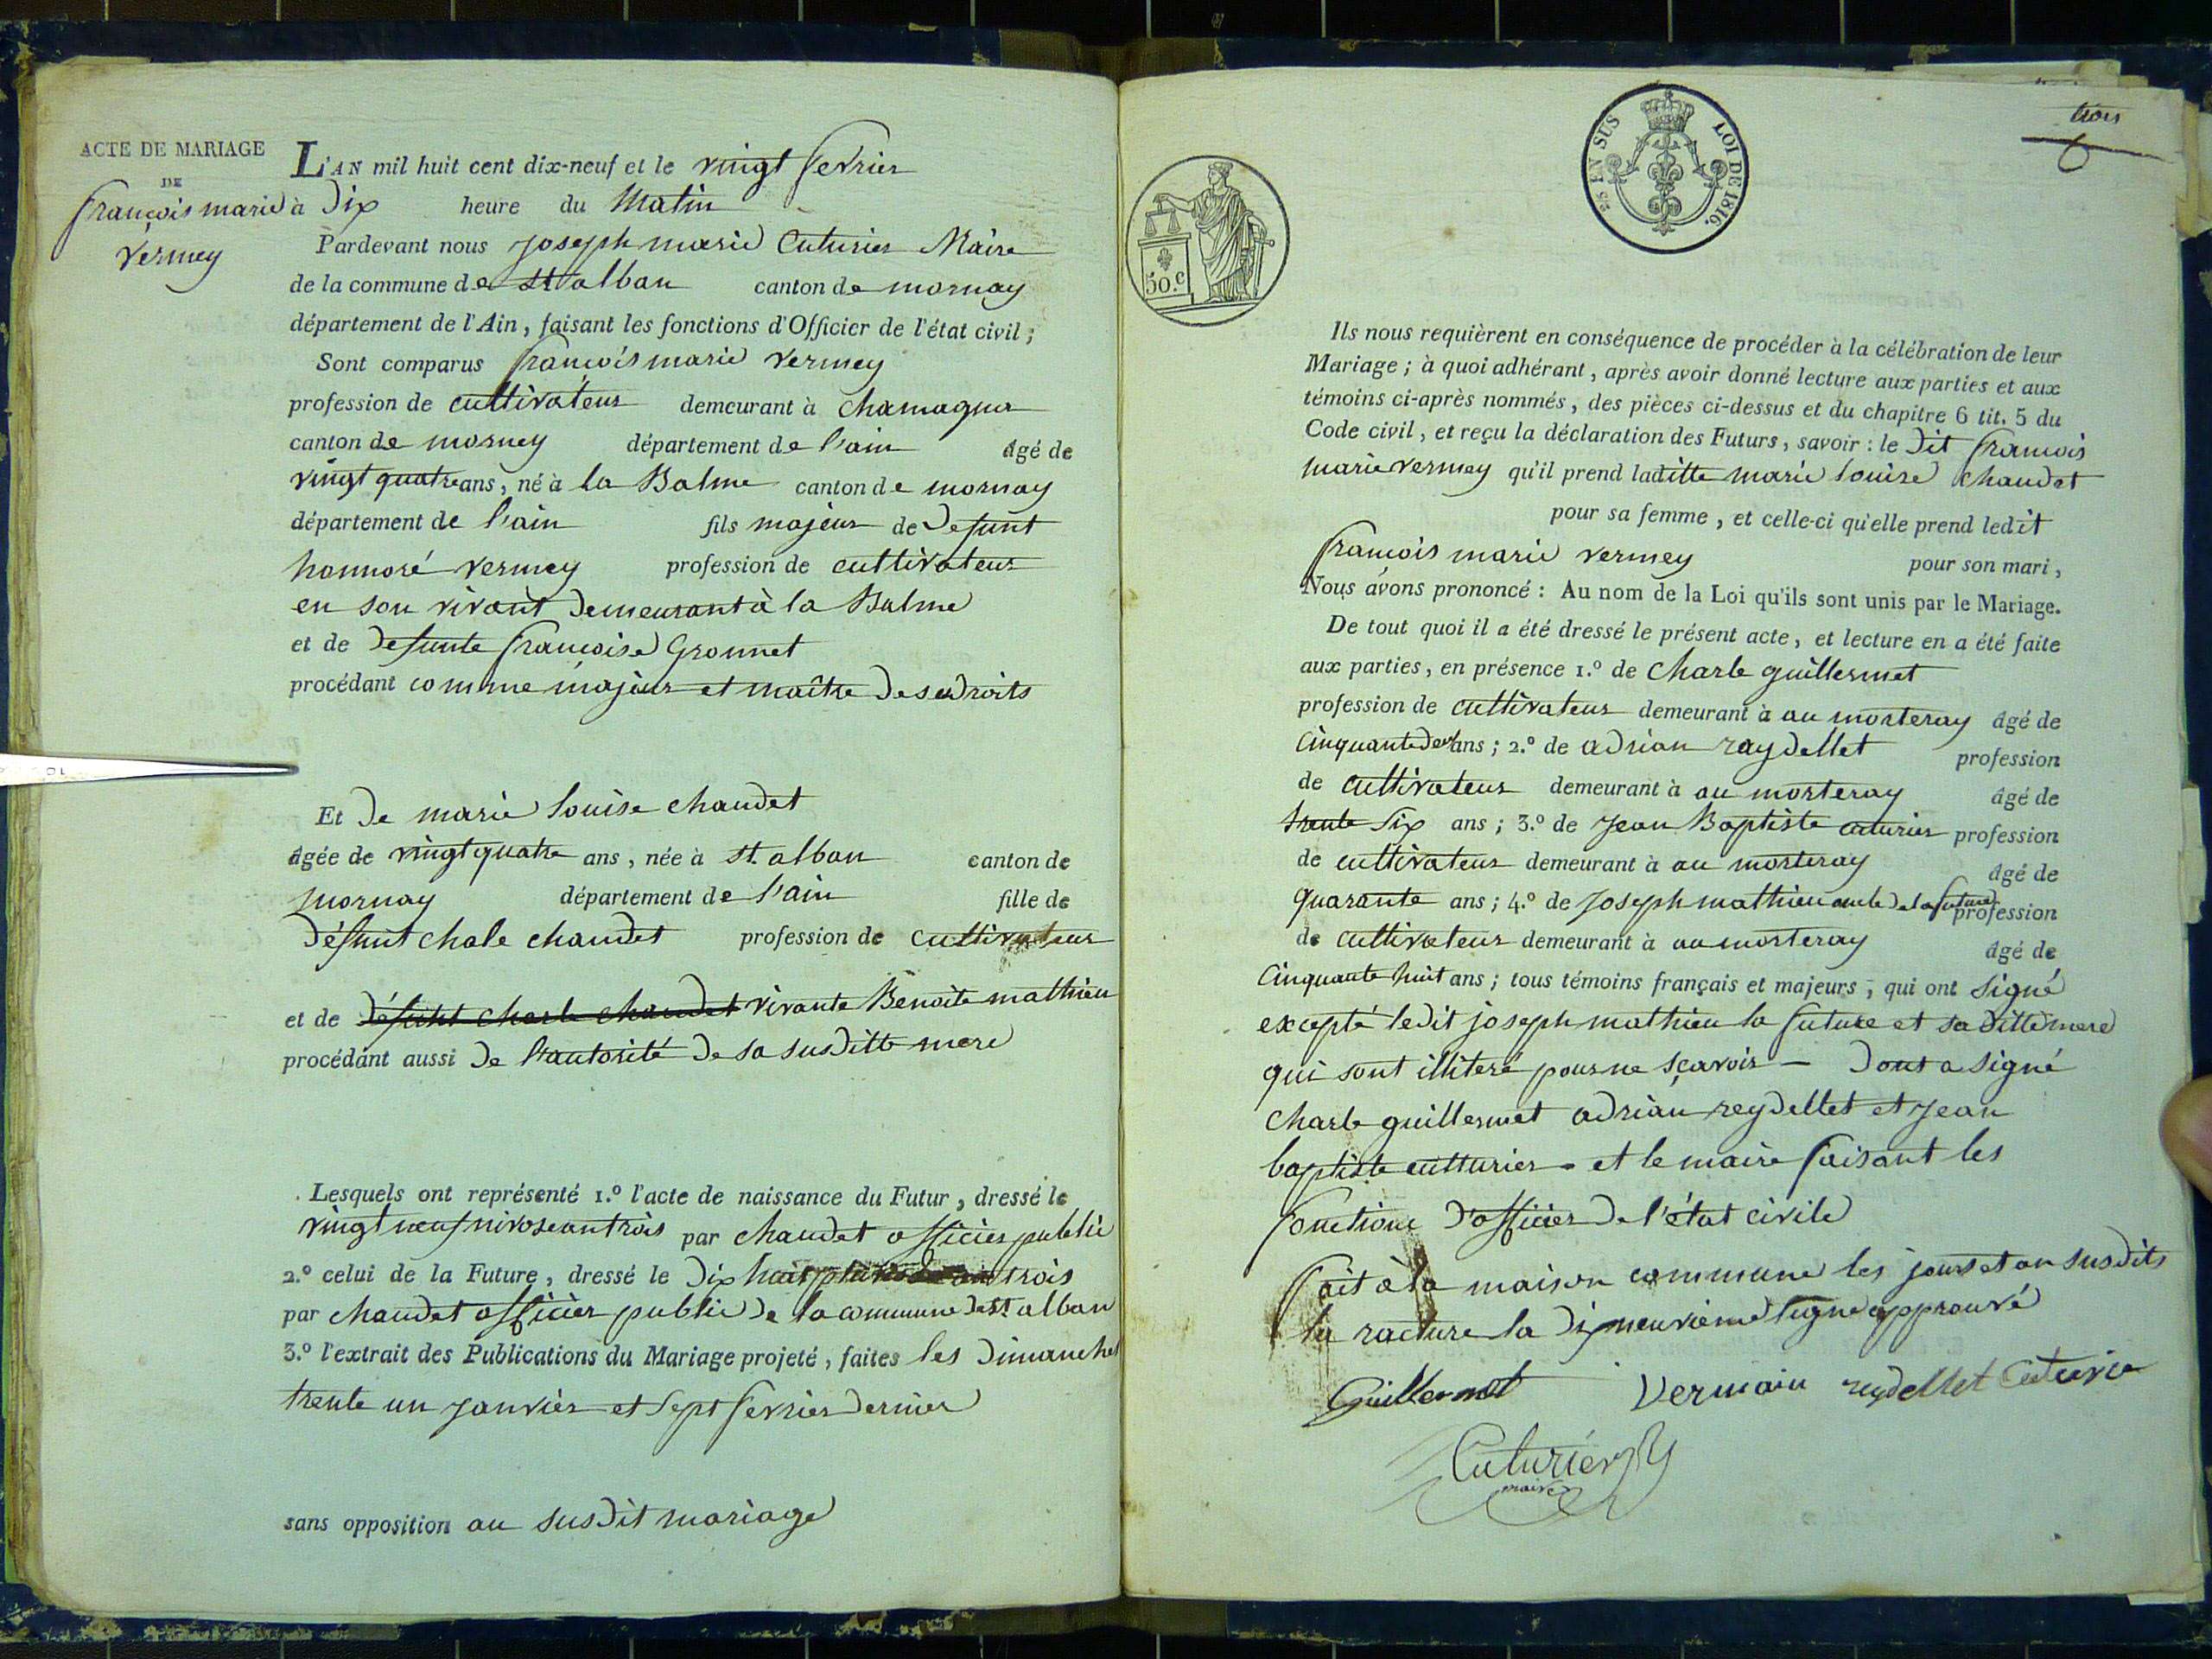 ACTE DE MARIAGE
DE
françois marie
vermey
L'AN mil huit cent dix-neuf et le vingt fevrier
à Dix heure du Matin
Pardevant nous joseph marie Cuturier Maire
de la commune de st alban canton de mornay
département de l'Ain, faisant les fonctions d'Officier de l'état civil;
Sont comparus françois marie vermey
profession de cultivateur demeurant à chamagna
canton de morney département de l'ain âgé de
vingt quatre ans, né à la Balme canton de mornay
département de l'ain fils majeur de Defunt
honnoré vermey profession de cultivateur
en son vivant Demeurant à la Balme
et de Defunte françoise Gronnet
procédant comme majeur et maître De ses Droits
Et De marie louise chaudet
âgée de vingt quatre ans, née à st. alban canton de
mornay département de l'ain fille de
Défunt chale chaudet profession de cultivateur
et de Défunt charle chaudet vivante Benoite mathieu
procédant aussi De l'autorité De sa susditte mere
Lesquels ont représenté 1.º l'acte de naissance du Futur, dressé le
vingt neuf nivose an trois par chaudet officier public
2.º celui de la Future, dressé le Dix huit pluviose an trois
par chaudet officier public De la commune De st alban
3.º l'extrait des Publications du Mariage projeté, faites les Dimanches
trente un janvier et sept fevrier Dernier
sans opposition au susdit mariage
trois
25 EN SUS
LOI DE 1816.
50.c
Ils nous requièrent en conséquence de procéder à la célébration de leur
Mariage; à quoi adhérant, après avoir donné lecture aux parties et aux
témoins ci-après nommés, des pièces ci-dessus et du chapitre 6 tit. 5 du
Code civil, et reçu la déclaration des Futurs, savoir: le Dit françois
marie vermey qu'il prend laditte marie louise chaudet
pour sa femme, et celle-ci qu'elle prend ledit
françois marie vermey pour son mari,
Nous avons prononcé: Au nom de la Loi qu'ils sont unis par le Mariage.
De tout quoi il a été dressé le présent acte, et lecture en a été faite
aux parties, en présence 1.º de charle guillermet
profession de cultivateur demeurant à au morteray âgé de
cinquante Deux ans; 2.º de adrian raydellet profession
de cultivateur demeurant à au morteray âgé de
trente six ans; 3.º de jean Baptiste cuturier profession
de cultivateur demeurant à au morteray âgé de
quarante ans; 4.º de joseph mathieu oncle De la future profession
de cultivateur demeurant à au morteray âgé de
cinquante huit ans; tous témoins français et majeurs, qui ont signé
excepté ledit joseph mathieu la future et sa ditte mere
qui sont illiteré pour ne sçavoir – Dont a signé
charle guillermet adrian reydellet et jean
baptiste cutturier - et le maire faisant les
fonctions D'officier De l'état civile
fait à la maison commune les jour et an susdits
la racture la Dixneuvieme ligne approuvé
Guillermet Vermain reydellet Cuturier
Cuturier
maire